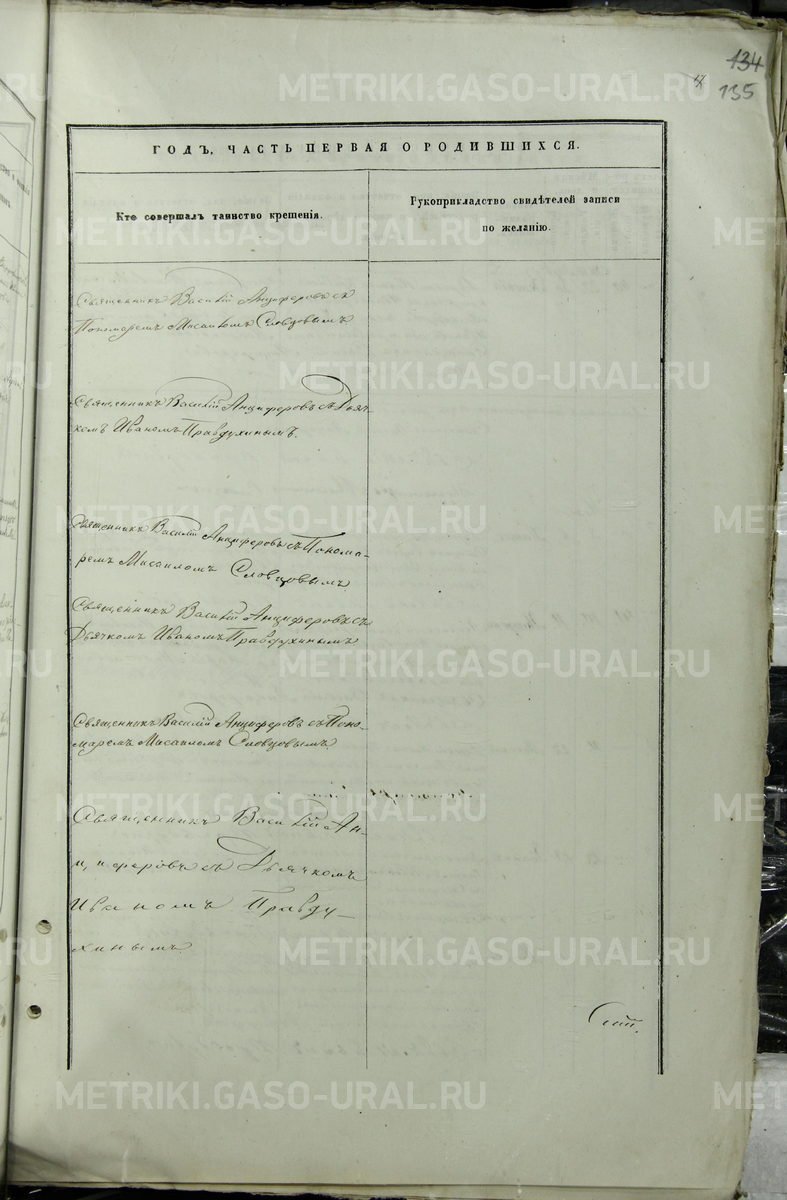 134
135
ГОДЪ, ЧАСТЬ ПЕРВАЯ О РОДИВШИХСЯ.
Кто совершалъ таинство крещенія.
Рукоприкладство свидѣтелей записи
по желанію.
Священникъ Василій Анциферовъ съ
Пономаремъ Мисаиломъ Словцовымъ
Священникъ Василій Анциферовъ съ Дьяч-
комъ Иваномъ Правдухинымъ.
Священникъ Василій Анциферовъ съ Понома-
ремъ Мисаиломъ Словцовымъ
Священникъ Василій Анциферовъ съ
Дьячкомъ Иваномъ Правдухинымъ
Священникъ Василій Анциферовъ съ Поно-
маремъ Мисаиломъ Словцовымъ.
Священникъ Василій Ан-
циферовъ съ Дьячкомъ
Иваномъ Правду-
хинымъ.
METRIKI.GASO-URAL.RU